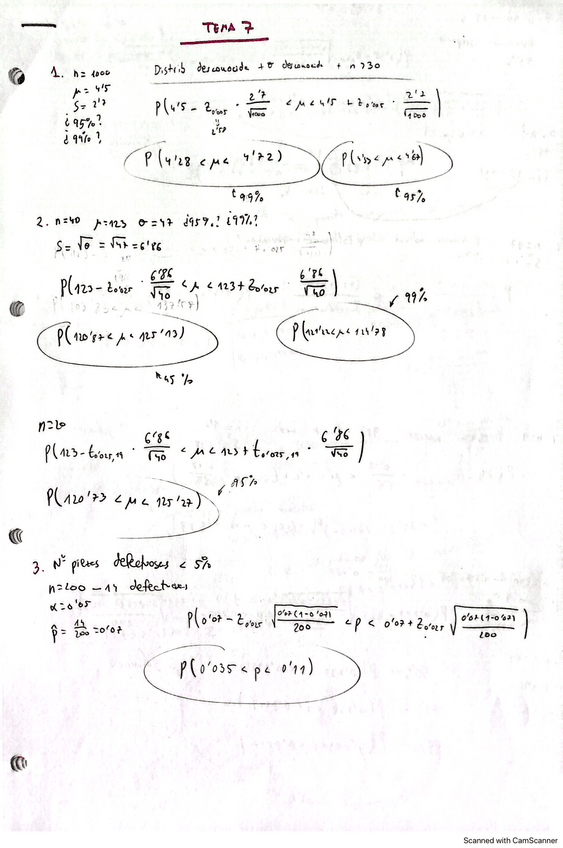 TEMA 7
1. n = 1000 Distrib desconocida + σ desconocida + n > 30
μ = 4'5
S = 2'7
¿95%?
¿99%?
P(4'5 - Z0'005 · 2'7/√1000 < μ < 4'5 + Z0'005 · 2'7/√1000)
2'58
P(4'28 < μ < 4'72)
99%
95%
2. n=40 μ=123 σ=47 ¿95%? ¿99%?
S = √σ = √47 = 6'86
P(123 - Z0'025 · 6'86/√40 < μ < 123 + Z0'025 · 6'86/√40)
99%
P(120'87 < μ < 125'13)
n=20
P(123 - t0'025,19 · 6'86/√40 < μ < 123 + t0'025,19 · 6'86/√40)
95%
P(120'73 < μ < 125'27)
3. Nº piezas defectuosas < 5%
n=200 – 14 defectuosas
α=0'05
p̂ = 14/200 = 0'07
P(0'07 - Z0'025 √(0'07(1-0'07)/200) < p < 0'07 + Z0'025 √(0'07(1-0'07)/200))
P(0'035 < p < 0'11)
Scanned with CamScanner